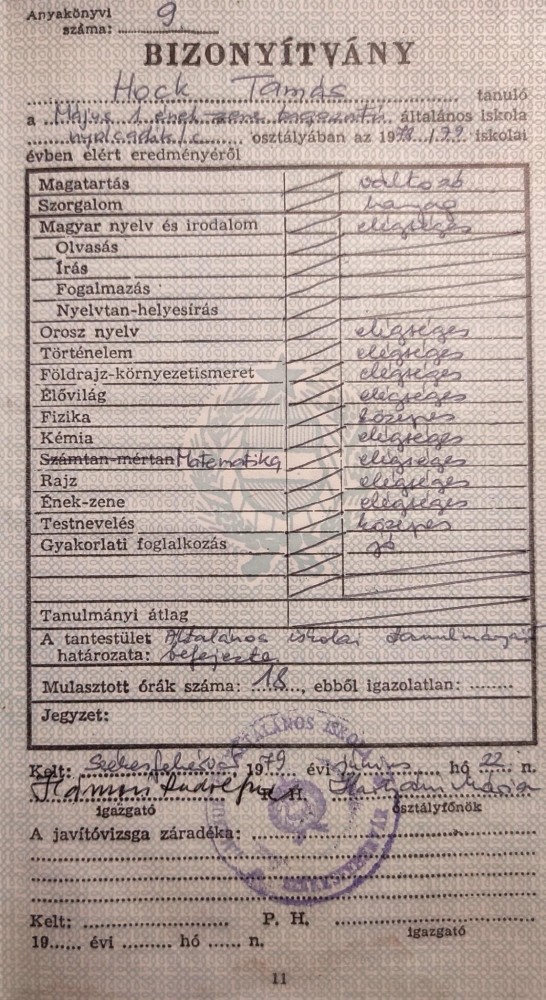 Anyakönyvi
száma: 9
BIZONYÍTVÁNY
Hock Tamás tanuló
a Május 1. ének általános iskola
nyolcadik/c. osztályában az 1978/79 iskolai
évben elért eredményéről
Magatartás változó
Szorgalom hanyag
Magyar nyelv és irodalom elégséges
Olvasás
Írás
Fogalmazás
Nyelvtan-helyesírás
Orosz nyelv elégséges
Történelem elégséges
Földrajz-környezetismeret elégséges
Élővilág elégséges
Fizika közepes
Kémia elégséges
Számtan-mértan Matematika elégséges
Rajz elégséges
Ének-zene elégséges
Testnevelés közepes
Gyakorlati foglalkozás jó
Tanulmányi átlag
A tantestület Általános iskolai tanulmányait
határozata: befejezte.
Mulasztott órák száma: 18, ebből igazolatlan:
Jegyzet:
ÁLTALÁNOS ISKOLA
Kelt: Székesfehérvár 1979 évi június hó 22 n.
P. H. Mária
igazgató osztályfőnök
SZÉKESFEHÉRVÁR
A javítóvizsga záradéka:
Kelt: P. H.
igazgató
19 évi hó n.
11